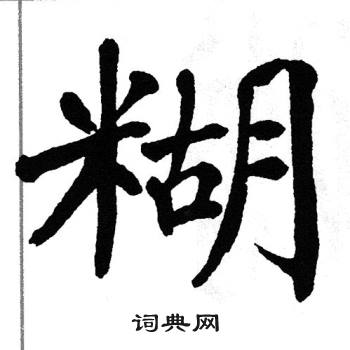 糊
词典网